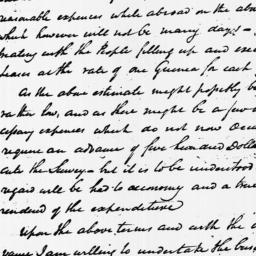 reasonable expences while abroad on the abov
which however will not be many days –
treating with the People filling up and exec
leases at the rate of one Guinea for each
As the above estimate might propobly be
rather low, and as there might be a few
cepary expences which do not now Occu
require an advance of five hundred Dolla
cute the Survey – but it is to be understood
regard will be had to œconomy and a true
rendered of the expenditure
Upon the above terms and with the a
vance I am willing to undertake the bus